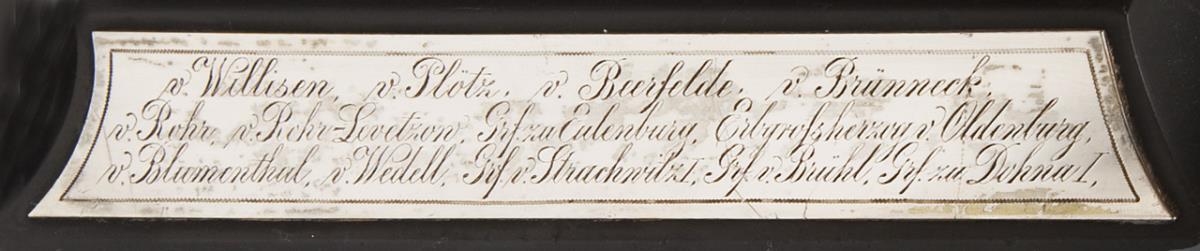 v. Willisen, v. Plötz, v. Beerfelde, v. Brünneck,
v. Rohr, v. Rohr-Levetzow, Grf. zu Eulenburg, Erbgroſsherzog v. Oldenburg,
v. Blumenthal, v. Wedell, Grf. v. Strachwitz I, Grf. v. Brühl, Grf. zu Dohna I,